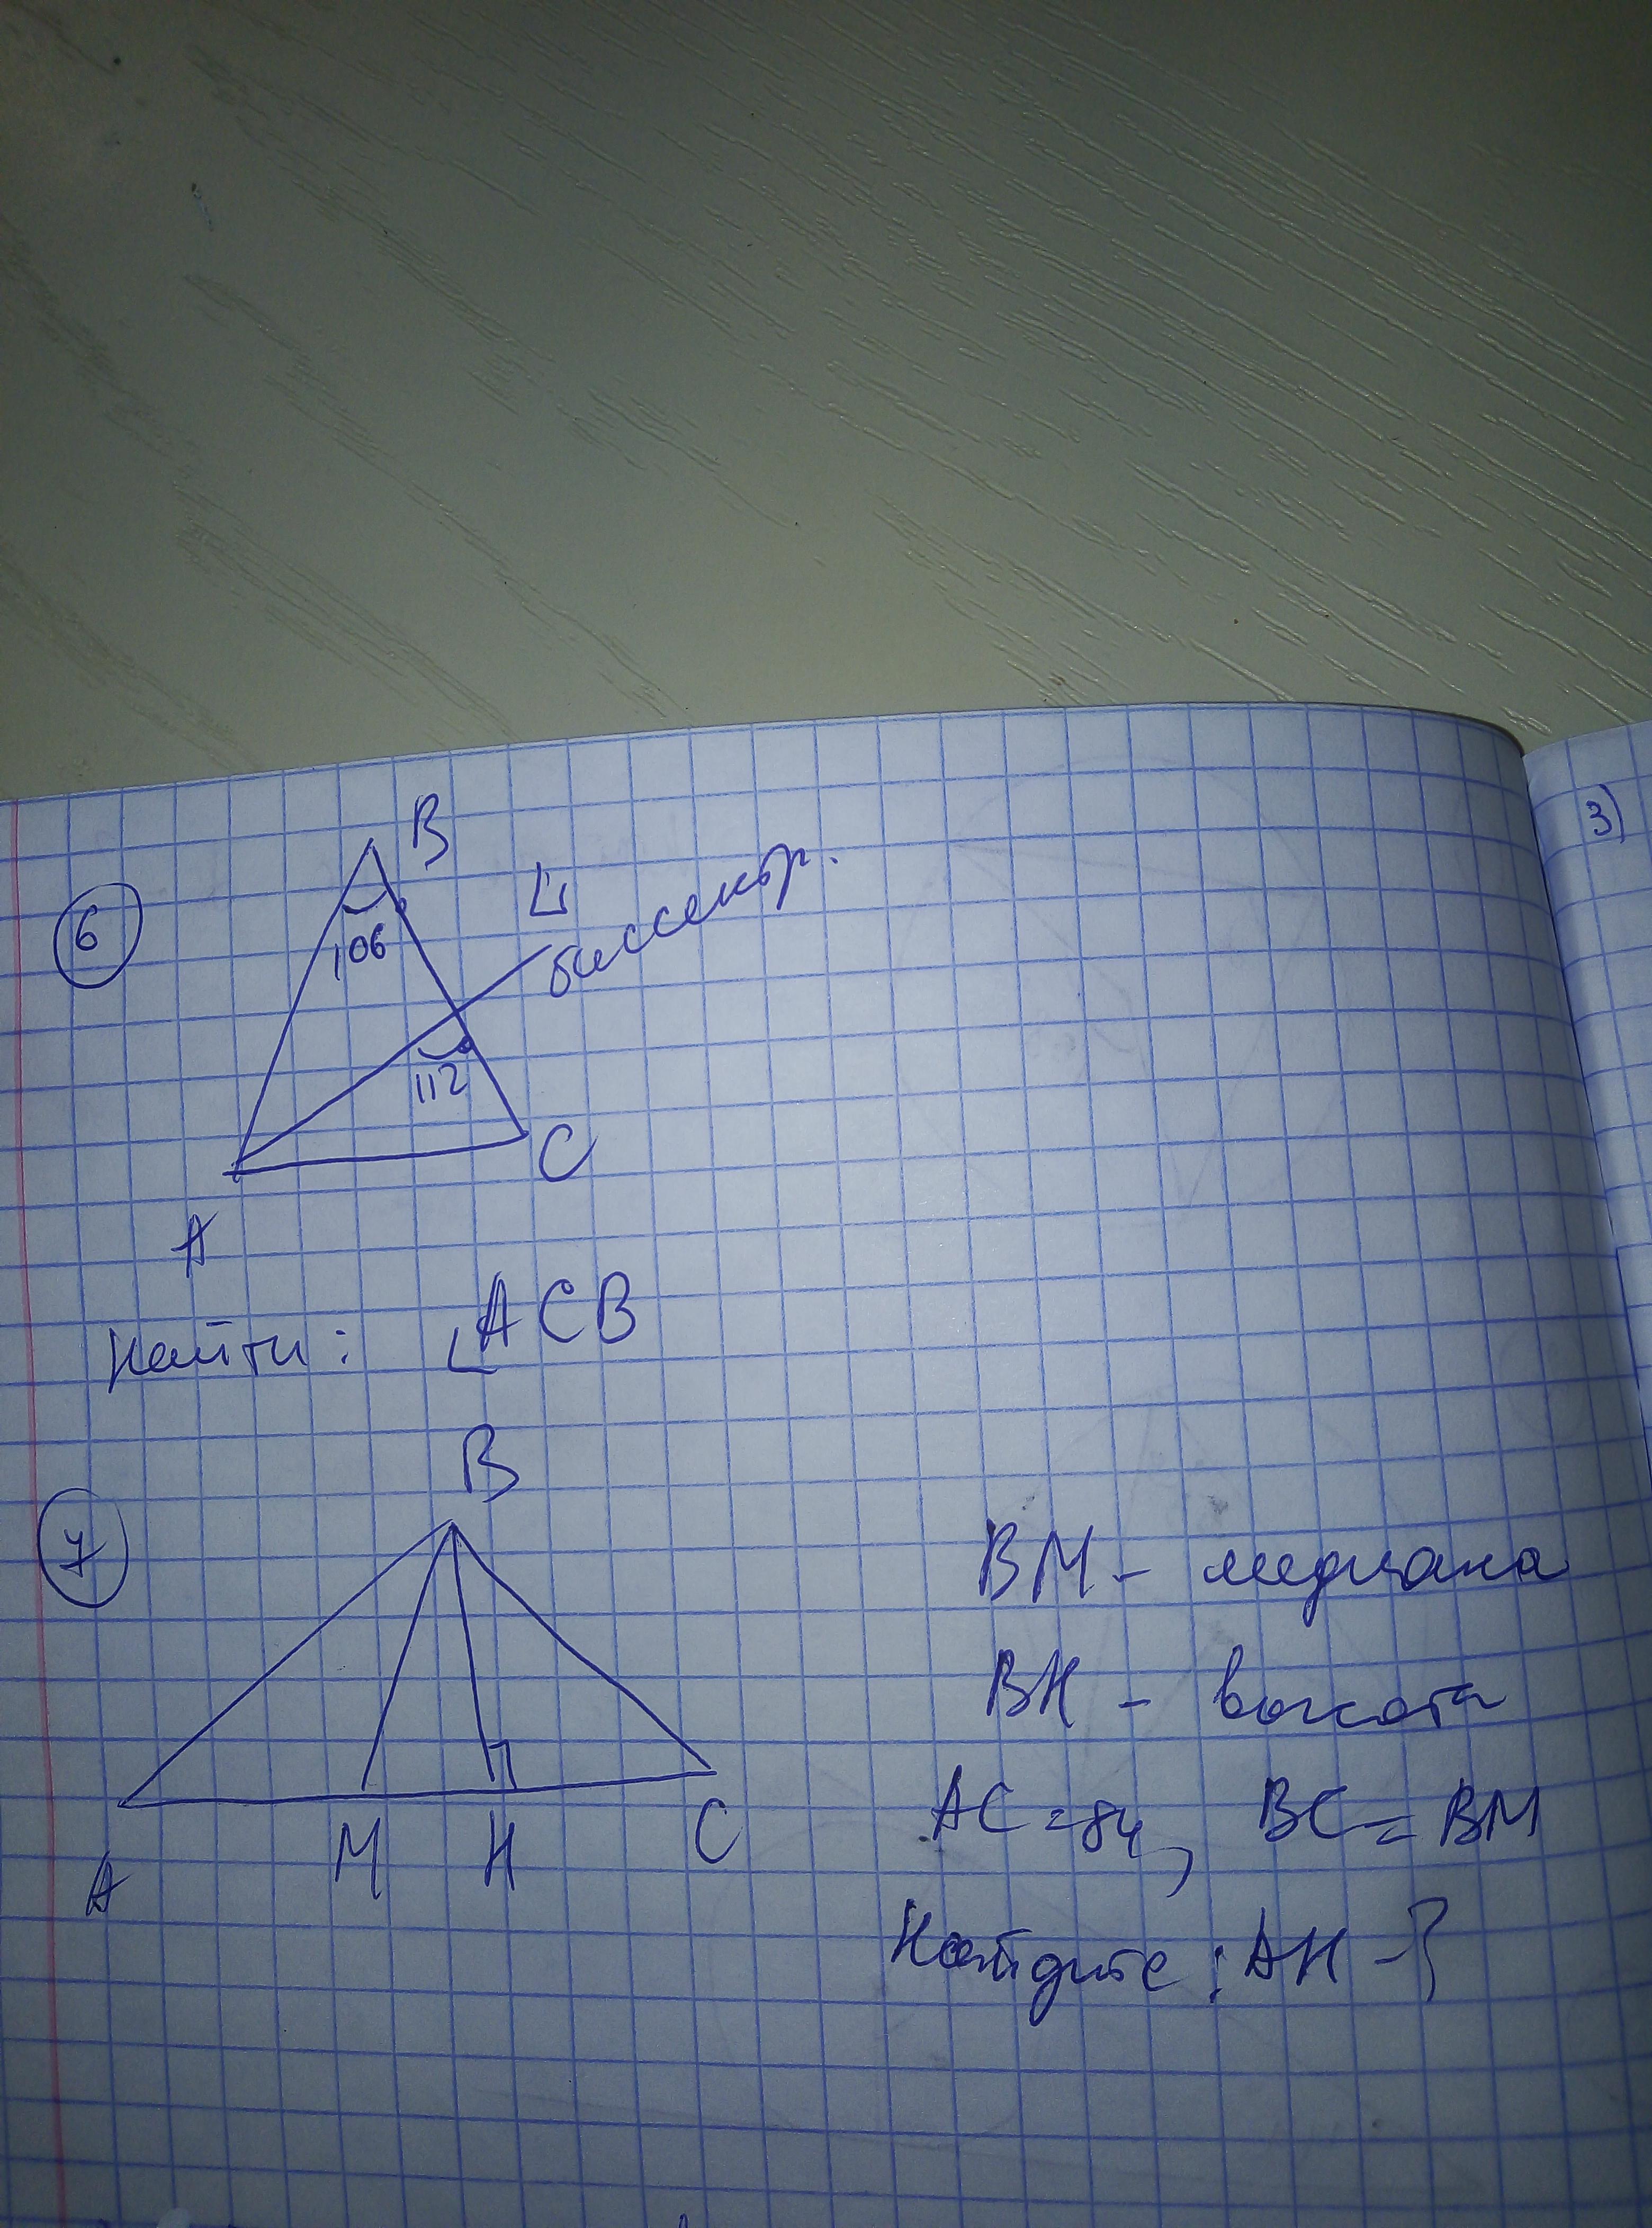 6
B
L
биссектр.
106
112
C
A
Найти: ∠ACB
7
B
BM - медиана
BH - высота
AC=84, BC=BM
M H C
A
Найдите: AH-?
3)